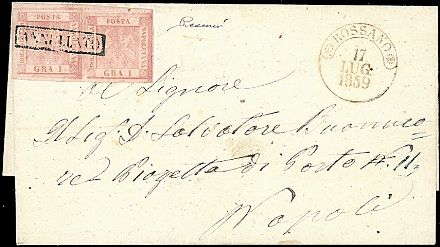 POSTA NAPOLETANA GRA 1
POSTA NAPOLETANA GRA 1
ANNULLATO
ROSSANO
17
LUG.
1859
Al Signore
Al Sig. D. Salvatore Buonoco
re 2 Piazzetta di Porto N.
Napoli